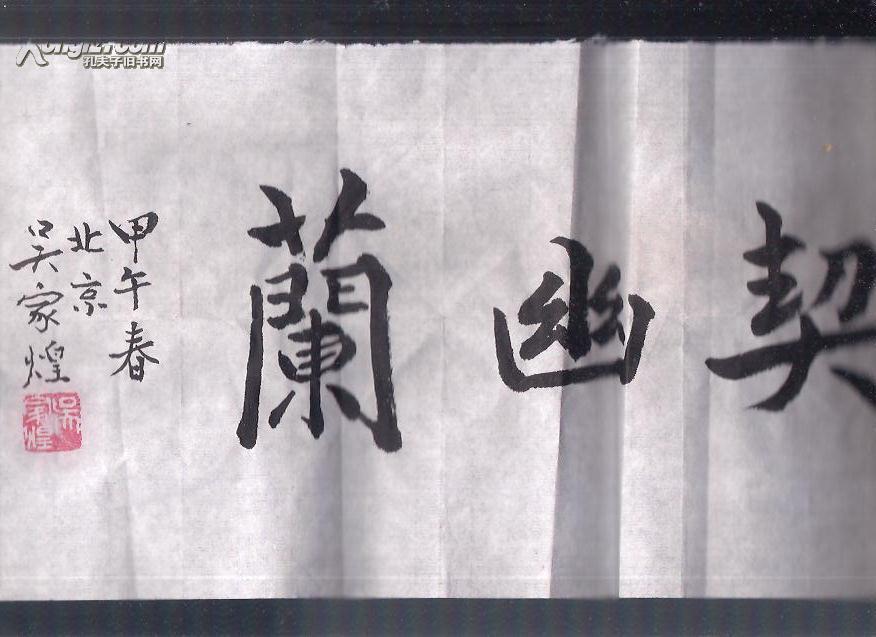 契幽蘭
甲午春
北京
吴家煌
吴家煌
孔夫子旧书网